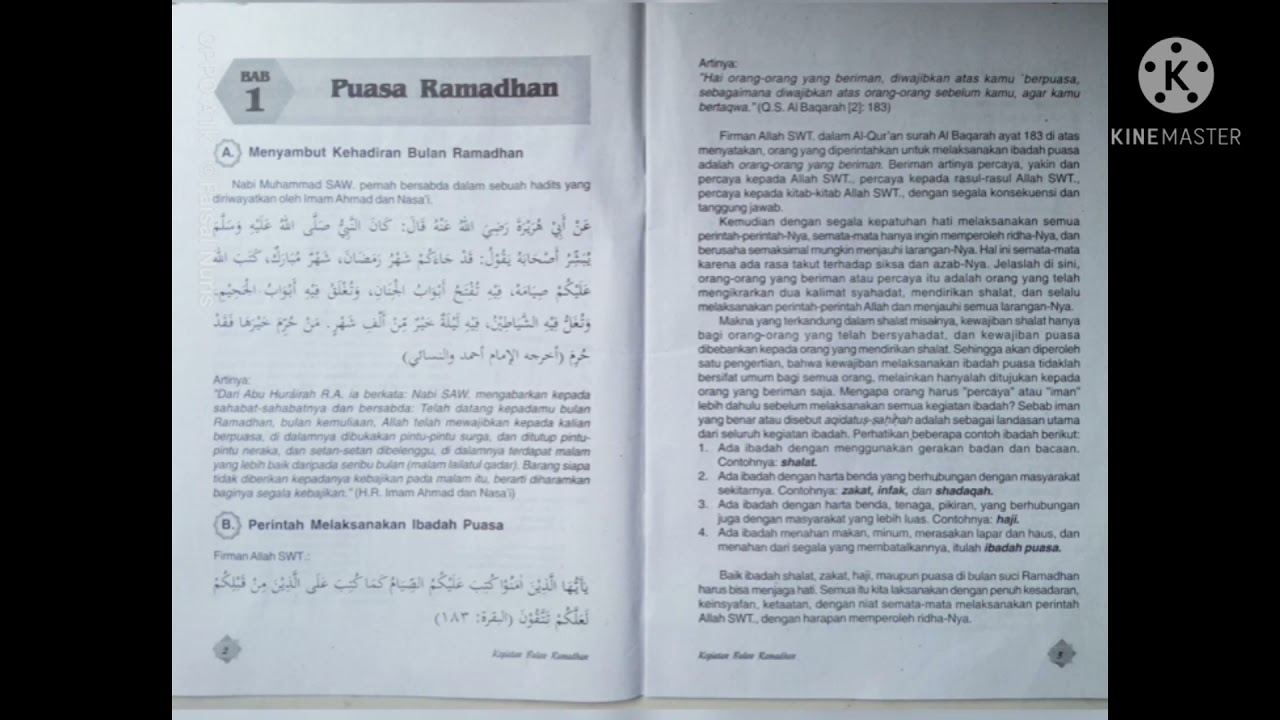 BAB
1
Puasa Ramadhan
A. Menyambut Kehadiran Bulan Ramadhan
Nabi Muhammad SAW. pernah bersabda dalam sebuah hadits yang
diriwayatkan oleh Imam Ahmad dan Nasa'i.
عَنْ أَبِيْ هُرَيْرَةَ رَضِيَ اللهُ عَنْهُ قَالَ: كَانَ النَّبِيُّ صَلَّى اللهُ عَلَيْهِ وَسَلَّمَ
يُبَشِّرُ أَصْحَابَهُ يَقُوْلُ: قَدْ جَاءَكُمْ شَهْرُ رَمَضَانَ، شَهْرٌ مُبَارَكٌ، كَتَبَ اللهُ
عَلَيْكُمْ صِيَامَهُ، فِيْهِ تُفْتَحُ أَبْوَابُ الْجِنَانِ، وَتُغْلَقُ فِيْهِ أَبْوَابُ الْجَحِيْمِ.
وَتُغَلُّ فِيْهِ الشَّيَاطِيْنُ، فِيْهِ لَيْلَةٌ خَيْرٌ مِّنْ أَلْفِ شَهْرٍ. مَنْ حُرِمَ خَيْرَهَا فَقَدْ
حُرِمَ (أخرجه الإمام أحمد والنسائي)
Artinya:
"Dari Abu Hurairah R.A. ia berkata: Nabi SAW. mengabarkan kepada
sahabat-sahabatnya dan bersabda: Telah datang kepadamu bulan
Ramadhan, bulan kemuliaan, Allah telah mewajibkan kepada kalian
berpuasa, di dalamnya dibukakan pintu-pintu surga, dan ditutup pintu-
pintu neraka, dan setan-setan dibelenggu, di dalamnya terdapat malam
yang lebih baik daripada seribu bulan (malam lailatul qadar). Barang siapa
tidak diberikan kepadanya kebajikan pada malam itu, berarti diharamkan
baginya segala kebajikan." (H.R. Imam Ahmad dan Nasa'i)
B. Perintah Melaksanakan Ibadah Puasa
Firman Allah SWT.:
يٰٓأَيُّهَا الَّذِيْنَ اٰمَنُوْا كُتِبَ عَلَيْكُمُ الصِّيَامُ كَمَا كُتِبَ عَلَى الَّذِيْنَ مِنْ قَبْلِكُمْ
لَعَلَّكُمْ تَتَّقُوْنَ (البقرة: ١٨٣)
2
Kegiatan Bulan Ramadhan
Artinya:
"Hai orang-orang yang beriman, diwajibkan atas kamu berpuasa,
sebagaimana diwajibkan atas orang-orang sebelum kamu, agar kamu
bertaqwa." (Q.S. Al Baqarah [2]: 183)
Firman Allah SWT. dalam Al-Qur'an surah Al Baqarah ayat 183 di atas
menyatakan, orang yang diperintahkan untuk melaksanakan ibadah puasa
adalah orang-orang yang beriman. Beriman artinya percaya, yakin dan
percaya kepada Allah SWT., percaya kepada rasul-rasul Allah SWT.,
percaya kepada kitab-kitab Allah SWT., dengan segala konsekuensi dan
tanggung jawab.
Kemudian dengan segala kepatuhan hati melaksanakan semua
perintah-perintah-Nya, semata-mata hanya ingin memperoleh ridha-Nya, dan
berusaha semaksimal mungkin menjauhi larangan-Nya. Hal ini semata-mata
karena ada rasa takut terhadap siksa dan azab-Nya. Jelaslah di sini,
orang-orang yang beriman atau percaya itu adalah orang yang telah
mengikrarkan dua kalimat syahadat, mendirikan shalat, dan selalu
melaksanakan perintah-perintah Allah dan menjauhi semua larangan-Nya.
Makna yang terkandung dalam shalat misalnya, kewajiban shalat hanya
bagi orang-orang yang telah bersyahadat, dan kewajiban puasa
dibebankan kepada orang yang mendirikan shalat. Sehingga akan diperoleh
satu pengertian, bahwa kewajiban melaksanakan ibadah puasa tidaklah
bersifat umum bagi semua orang, melainkan hanyalah ditujukan kepada
orang yang beriman saja. Mengapa orang harus "percaya" atau "iman"
lebih dahulu sebelum melaksanakan semua kegiatan ibadah? Sebab iman
yang benar atau disebut aqidatuṣ-ṣaḥīḥah adalah sebagai landasan utama
dari seluruh kegiatan ibadah. Perhatikan beberapa contoh ibadah berikut:
1. Ada ibadah dengan menggunakan gerakan badan dan bacaan.
Contohnya: shalat.
2. Ada ibadah dengan harta benda yang berhubungan dengan masyarakat
sekitarnya. Contohnya: zakat, infak, dan shadaqah.
3. Ada ibadah dengan harta benda, tenaga, pikiran, yang berhubungan
juga dengan masyarakat yang lebih luas. Contohnya: haji.
4. Ada ibadah menahan makan, minum, merasakan lapar dan haus, dan
menahan dari segala yang membatalkannya, itulah ibadah puasa.
Baik ibadah shalat, zakat, haji, maupun puasa di bulan suci Ramadhan
harus bisa menjaga hati. Semua itu kita laksanakan dengan penuh kesadaran,
keinsyafan, ketaatan, dengan niat semata-mata melaksanakan perintah
Allah SWT., dengan harapan memperoleh ridha-Nya.
Kegiatan Bulan Ramadhan
3
K
KINEMASTER